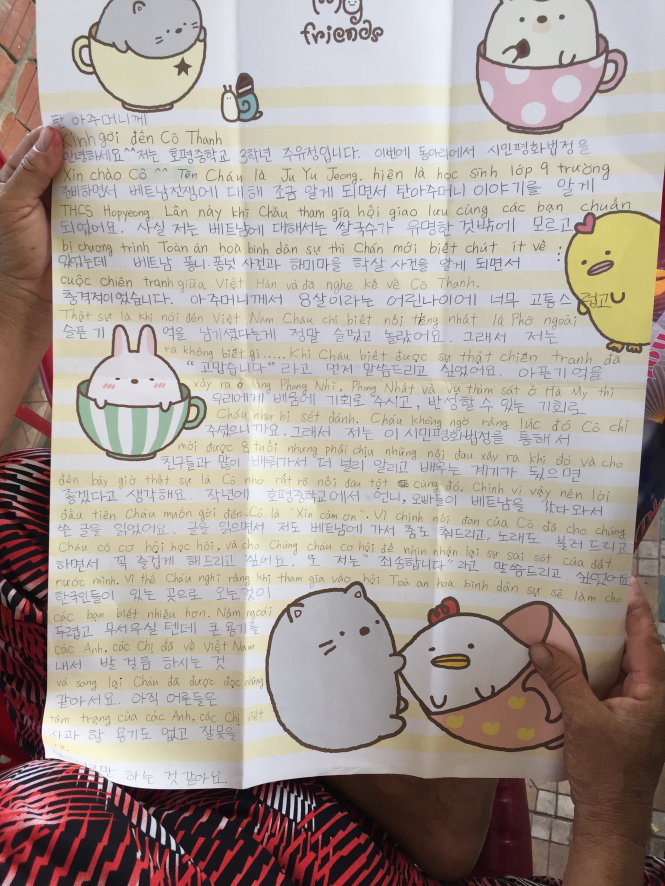 my
friends
탄 아주머니께
Kính gởi đến Cô Thanh
안녕하세요^^ 저는 호평중학교 3학년 주유정입니다. 이번에 동아리에서 시민평화법정을
Xin chào Cô ^^ Tên Cháu là Ju Yu Jeong. hiện là học sinh lớp 9 trường
준비하면서 베트남전쟁에 대해 조금 알게 되면서 탄아주머니 이야기를 알게
THCS Hopyeong. Lần này khi Cháu tham gia hội giao lưu cùng các bạn chuẩn
되었어요. 사실 저는 베트남에 대해서는 쌀국수가 유명한 것 밖에 모르고
bị chương trình Toàn án hoà bình dân sự thì Cháu mới biết chút ít về
있었는데... 베트남 퐁니·퐁넛 사건과 하미마을 학살 사건을 알게 되면서
cuộc chiến tranh giữa Việt Hàn và đã nghe kể về Cô Thanh.
충격적이었습니다. 아주머니께서 8살이라는 어린나이에 너무 고통스럽고
Thật sự là khi nói đến Việt Nam Cháu chỉ biết nổi tiếng nhất là Phở ngoài
슬픈 기억을 남기셨다는게 정말 슬펐고 놀랐어요. 그래서 저는
ra không biết gì..... Khi Cháu biết được sự thật chiến tranh đã
"고맙습니다" 라고 먼저 말씀드리고 싶었어요. 아픈기억을
xảy ra ở làng Phong Nhị, Phong Nhất và vụ thảm sát ở Hà My thì
우리에게 배움에 기회로 주시고, 반성할 수 있는 기회로
Cháu như bị sét đánh. Cháu không ngờ rằng lúc đó Cô chỉ
주셨으니까요. 그래서 저는 이 시민평화법정을 통해서
mới được 8 tuổi nhưng phải chịu những nỗi đau xảy ra khi đó và cho
친구들과 많이 배워가서 더 널리 알리고 배우는 계기가 됐으면
đến bây giờ thật sự là Cô nhớ rất rõ nỗi đau tột cùng đó. Chính vì vậy nên lời
좋겠다고 생각해요. 작년에 호평중학교에서 언니, 오빠들이 베트남을 갔다와서
đầu tiên Cháu muốn gởi đến Cô là "Xin cảm ơn". Vì chính nỗi đau của Cô đã cho chúng
쓴 글을 읽었어요. 글을 읽으면서 저도 베트남에 가서 춤도 춰드리고, 노래도 불러드리고
Cháu có cơ hội học hỏi, và cho Chúng cháu cơ hội để nhìn nhận lại sự sai sót của đất
하면서 꼭 즐겁게 해드리고 싶어요. 또 저는 "죄송합니다" 라고 말씀드리고 싶었어요
nước mình. Vì thế Cháu nghĩ rằng khi tham gia vào hội Toà an hoa bình dân sự sẽ làm cho
한국인들이 있는 곳으로 오는것이
các bạn biết nhiều hơn. Năm ngoái
두렵고 무서우실 텐데 큰 용기를
các Anh, các Chị đã về Việt Nam
내서 발 걸음 하시는 것
và sang lại Cháu đã được đọc những
같아서요. 아직 어른들은
tâm trạng của các Anh, các Chị viết
사과 할 용기도 없고 잘못을
하는 것 같아요.